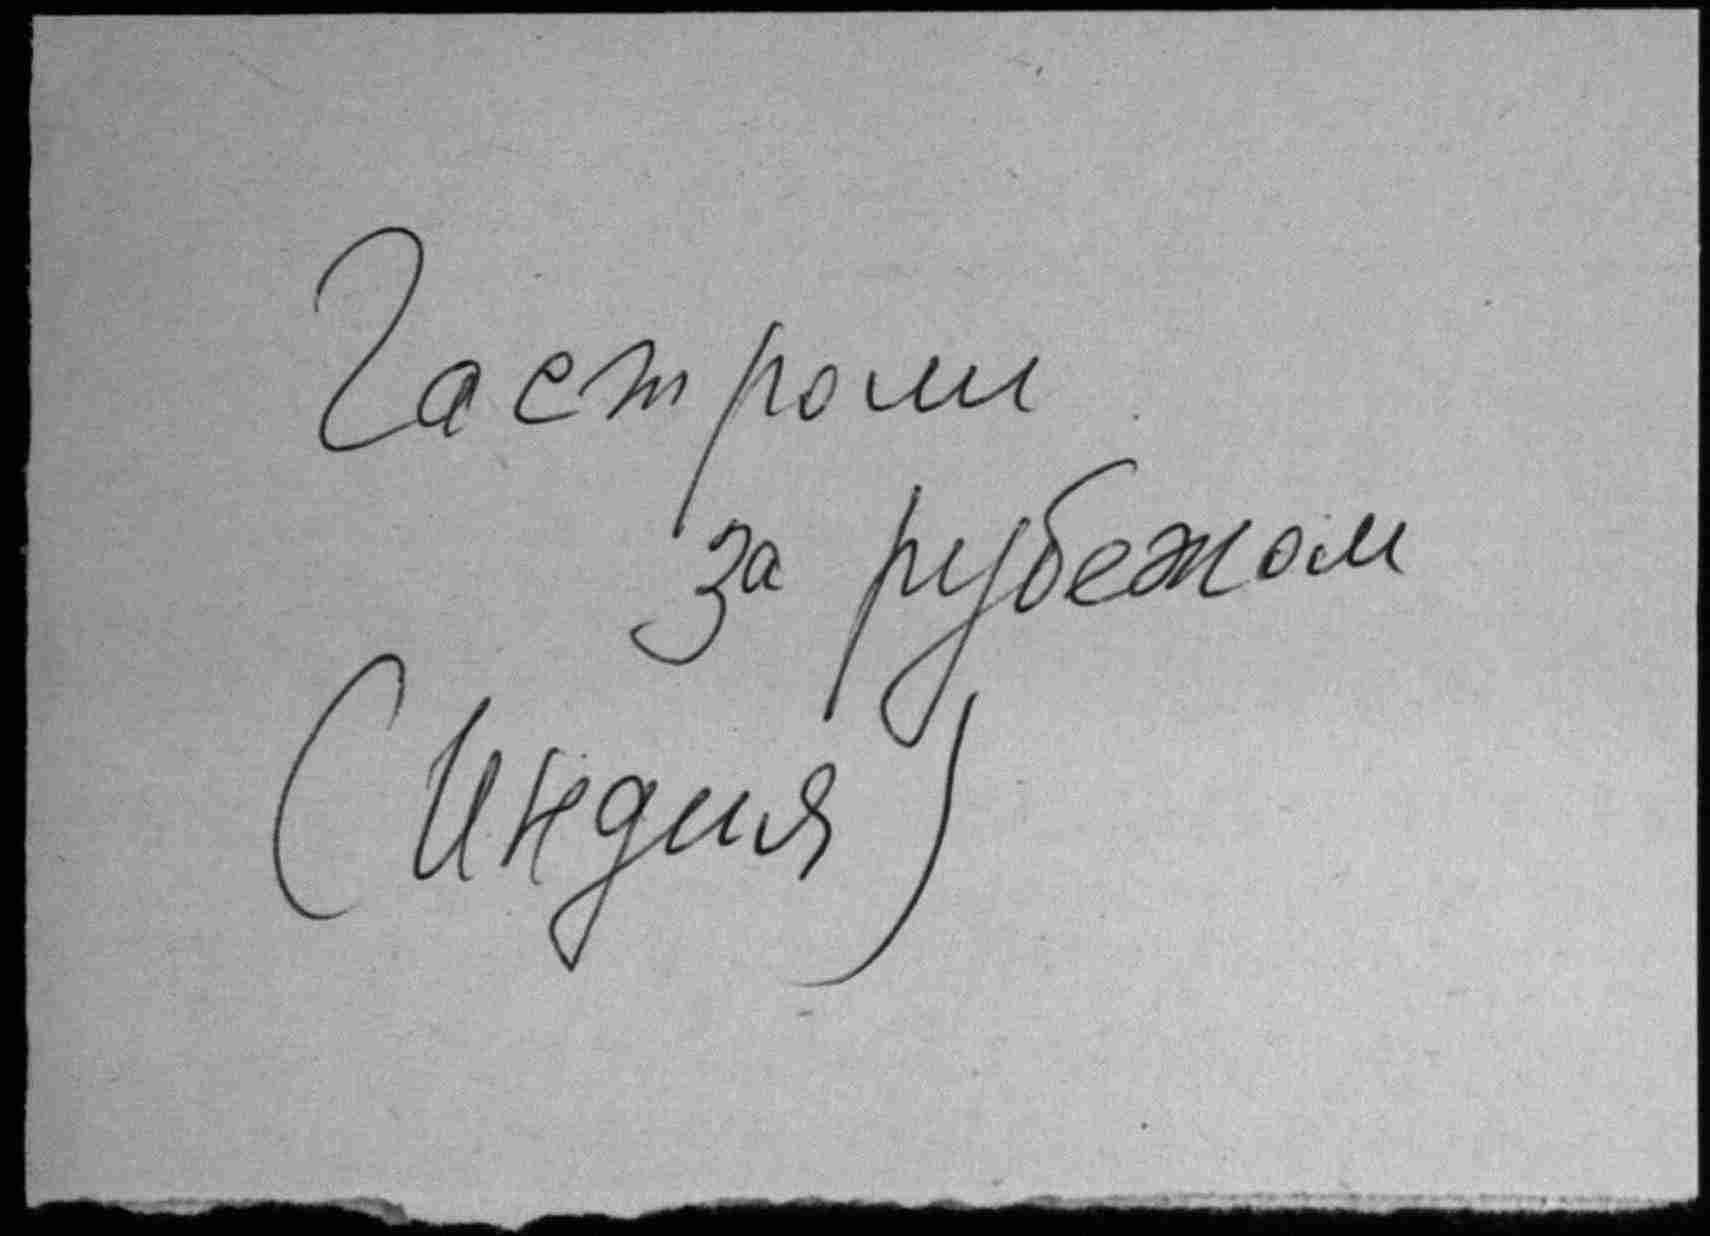 Гастроли
за рубежом
(Индия)